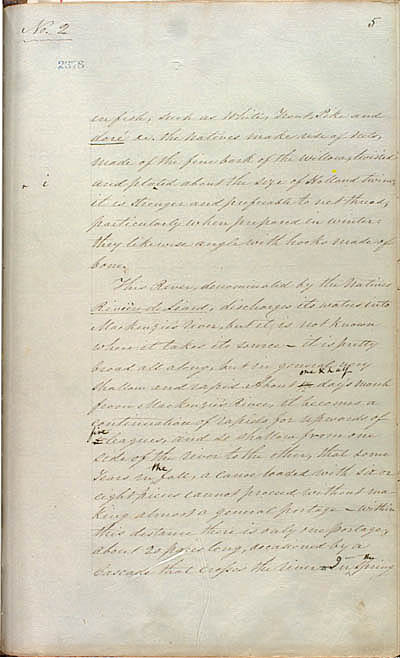 No. 2
5
2378
in fish, such as White, Trout Pike and
doré &c. the Natives make use of nets,
made of the fine bark of the Willow, twisted
and plated about the size of Holland twine,
it is stronger and preferable to net thread,
particularly when prepared in winter:
they likewise angle with hooks made of
bone.
This River, denominated by the Natives
Rivière de Liard, discharges its waters into
Mackenzie's River, but it is not known
where it takes its source – it is pretty
broad all along, but in general very
shallow and rapid. About one & half days march
from Mackenzie's River, it becomes a
continuation of rapids for upwards of
five leagues, and so shallow from one
side of the river to the other, that some
Years in the fall, a canoe loaded with six or
eight pieces cannot proceed without ma-
king almost a general portage – within
this distance there is only one portage,
about 20 paces long, occasioned by a
Cascade that crosses the river – In the Spring